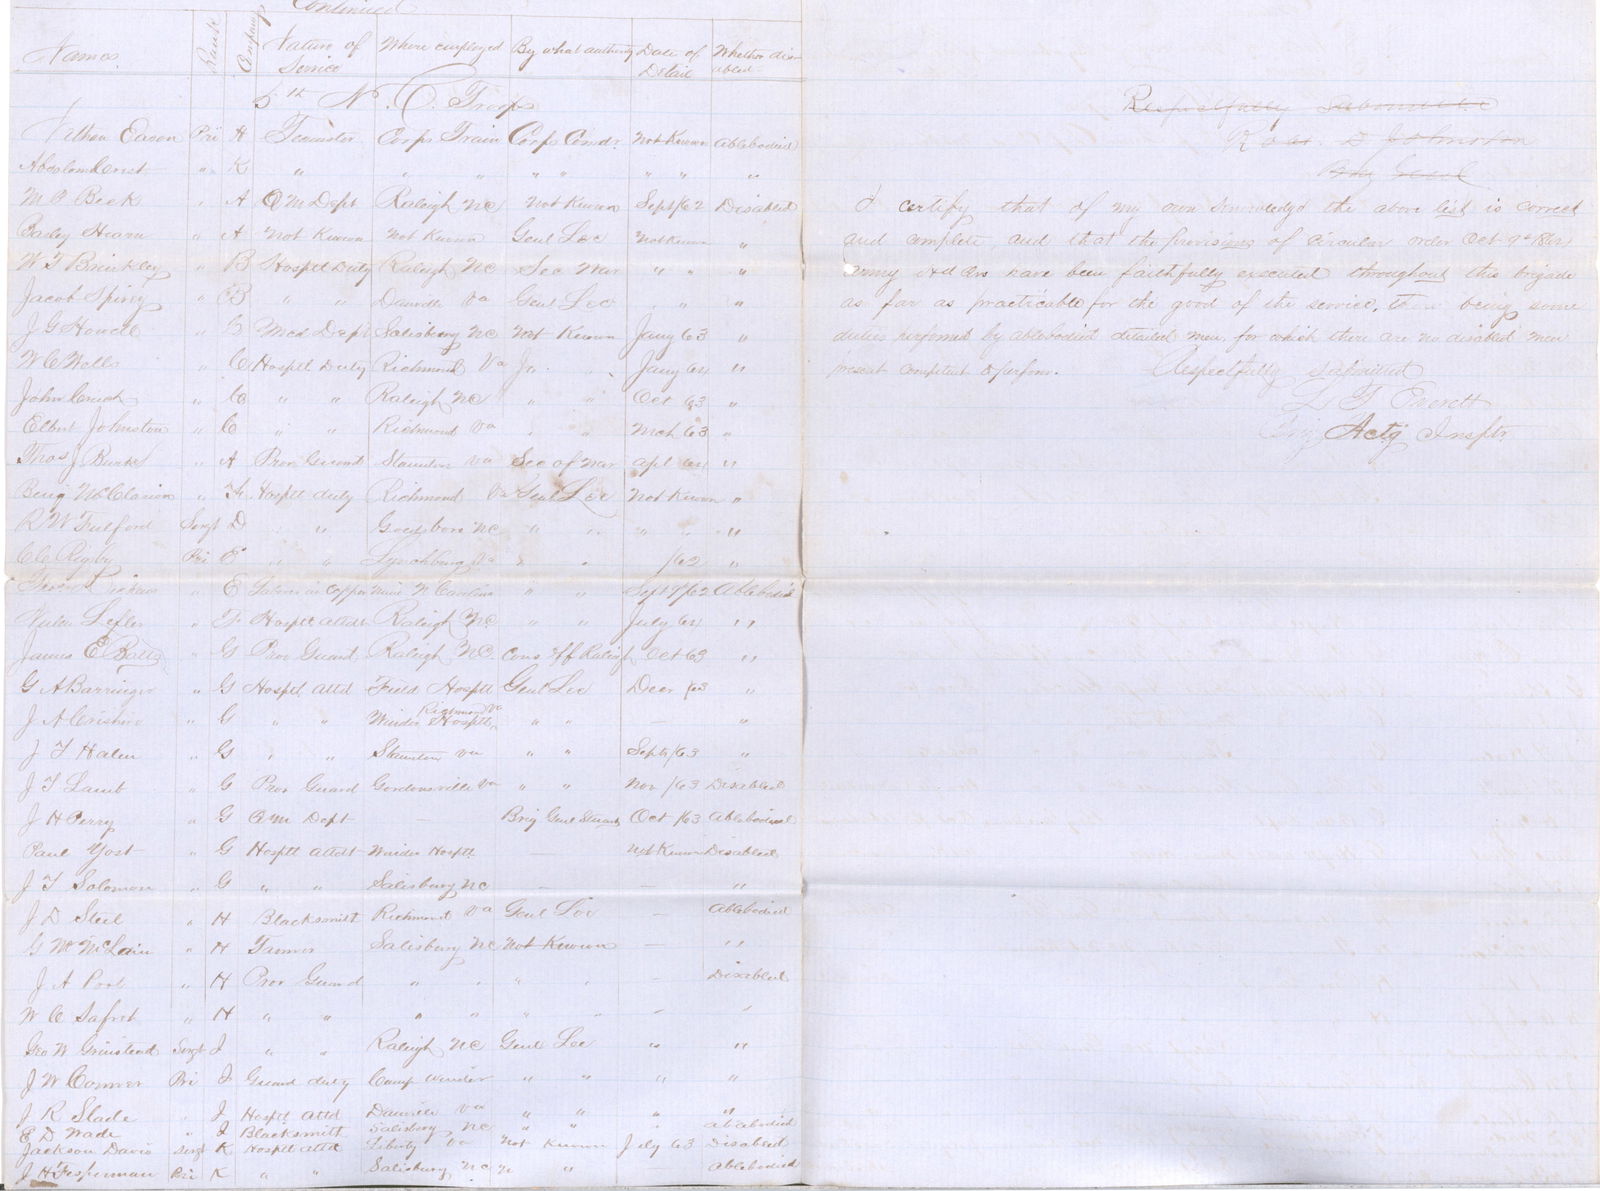 Continued
Names Rank Company Nature of Service Where employed By what authority Date of Detail Whether disabled
5th N. C. Troops
Eason Pri H Teamster Corps Train Corps Comdr. Not Known Ablebodied
Absalom " K " " " " " " " "
M P Beck " A Q M Dept Raleigh NC Not Known Sept/62 Disabled
Bailey Hearn " A Not Known Not Known Genl Lee Not Known "
W T Brinkley " B Hosptl Duty Raleigh NC Sec War " " "
Jacob Spivey " B " " Danville Va Genl Lee " " "
J G Howell " Med Dept Salisbury NC Not Known Jany 63 "
W C Walls " C Hosptl Duty Richmond Va " " Jany 64 "
John " C " " Raleigh NC " " Oct 63 "
Elbert Johnston " C " " Richmond Va " " Mch 63 "
Thos J Burke " A Prov Guard Staunton Va Sec of War Apl 64 "
Benj " F Hosptl duty Richmond Va Genl Lee Not Known "
R W Fulford Sergt D " " Goldsboro NC " " " " "
C C Rigby Pri E " " Lynchburg Va " " /62 "
" E Laborer in Copper Mine N Carolina " " Sept 7/62 Ablebodied
Lefler " F Hosptl attdt Raleigh NC " " July 64 "
James E Batts " G Prov Guard Raleigh NC. Cons Off Raleigh Oct 63 "
G A Barringer " G Hosptl attd Field Hosptl Genl Lee Decr /63 "
J A " G " " Winder Hosptl Richmond Va " " — "
J T " G " " Staunton Va " " Sept/63 "
J T Lamb " G Prov Guard Gordonsville Va " " Nov /63 Disabled
J H Perry " G Q M Dept — Brig Genl Oct /63 Ablebodied
Paul Yost " G Hosptl attdt Winder Hosptl — Not Known Disabled
J T Solomon " G " " Salisbury NC — — "
J D " H Blacksmith Richmond Va Genl Lee — Ablebodied
G McLain " H Tanner Salisbury NC Not Known — "
J A Pool " H Prov Guard " " " " — Disabled
W C Safret " H " " " " " " — "
Geo W Grinstead Sergt I " " Raleigh NC Genl Lee " "
J W Conner Pri I Guard duty Camp Winder " " " "
J R Slade " I Hosptl attd Danville Va " " " "
E D Wade " I Blacksmith Salisbury NC " " " ablebodied
Jackson Davis Sergt K Hosptl attd Liberty Va Not Known July 63 Disabled
J H Fesperman Pri K " " Salisbury NC " " — Ablebodied
Respectfully Submitted
Robt. D Johnston
Brig Genl
I certify that of my own knowledge the above list is correct
and complete, and that the provisions of circular order Oct 9th 1864
Army Hd Qrs have been faithfully executed throughout this brigade
as far as practicable for the good of the service, there being some
duties performed by ablebodied detailed men, for which there are no disabled men
present competent to perform. Respectfully submitted
L T Everett
Brig Actg Insptr